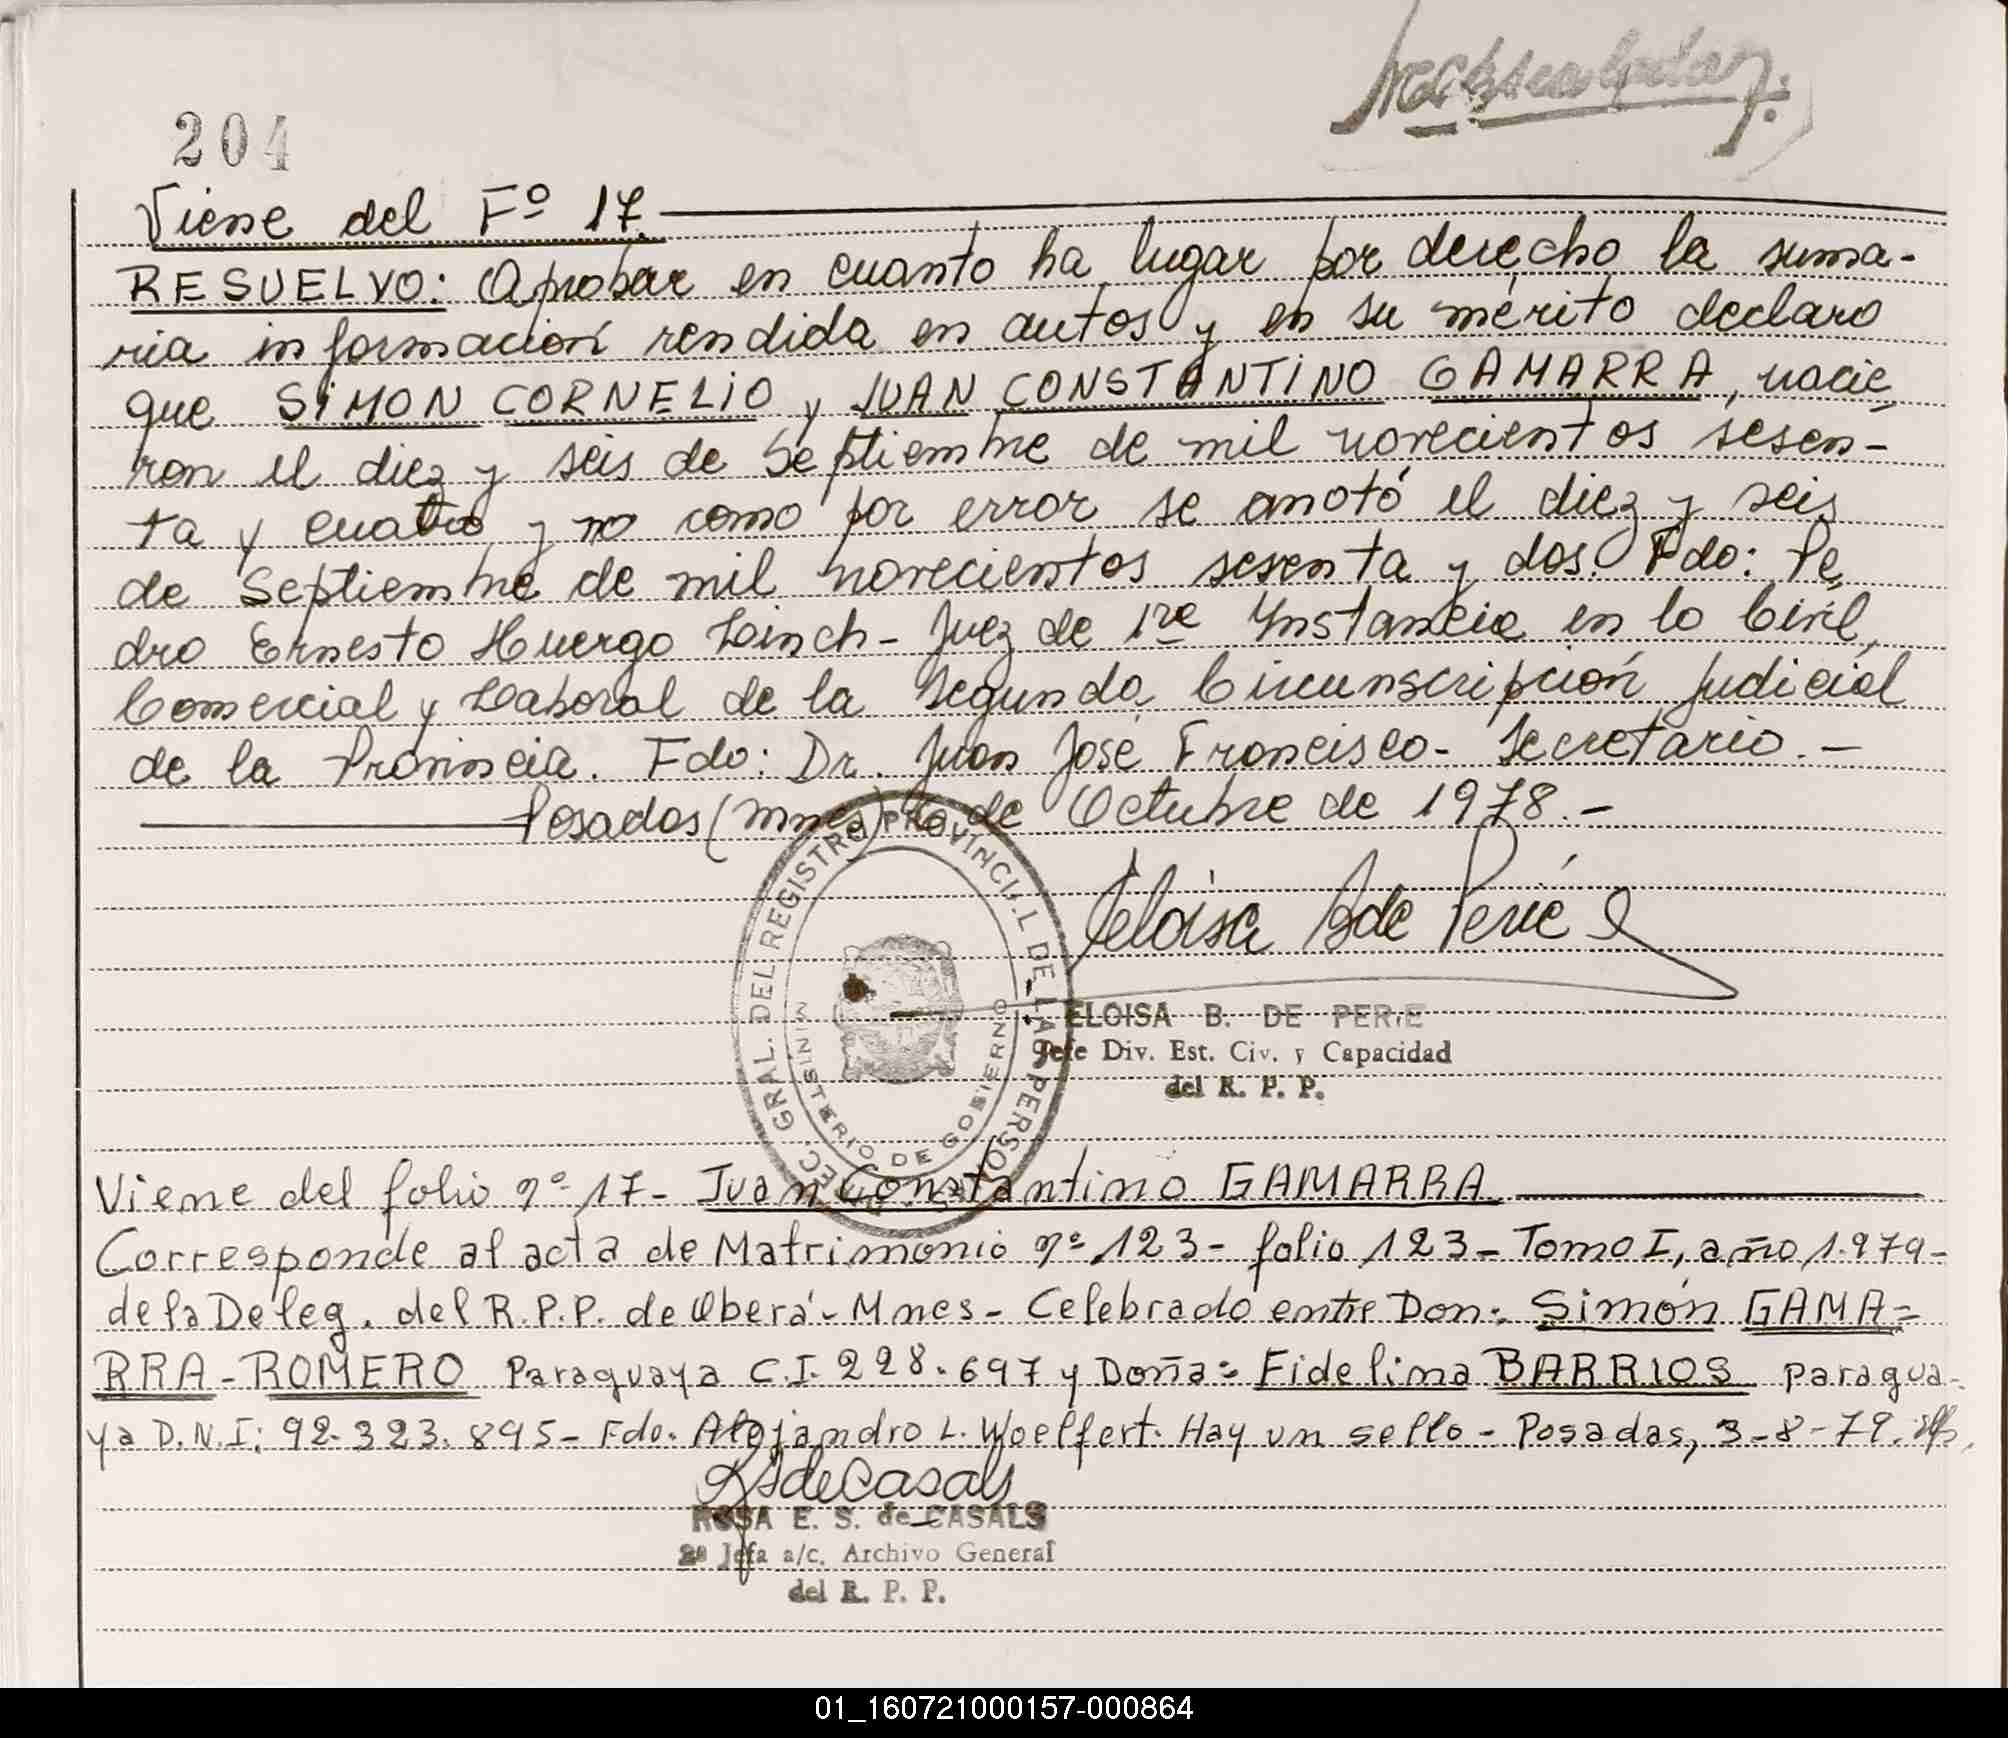 204
Viene del Fº 17.
RESUELVO: Aprobar en cuanto ha lugar por derecho la suma-
ria información rendida en autos y en su mérito declaro
que SIMON CORNELIO y JUAN CONSTANTINO GAMARRA, nacie
ron el diez y seis de Septiembre de mil novecientos sesen-
ta y cuatro y no como por error se anotó el diez y seis
de Septiembre de mil novecientos sesenta y dos. Fdo: Pe
dro Ernesto Huergo Linch - Juez de 1ra Instancia en lo Civil,
Comercial y Laboral de la Segunda Circunscripción Judicial
de la Provincia. Fdo: Dr. Juan José Francisco - Secretario. -
Posadas (Mnes) de Octubre de 1978. -
DIREC. GRAL. DEL REGISTRO PROVINCIAL DE LAS PERSONAS
MINISTERIO DE GOBIERNO
Eloisa B de Perié
ELOISA B. DE PERIE
Jefe Div. Est. Civ. y Capacidad
del R. P. P.
Viene del folio nº 17 - Juan Constantino GAMARRA
Corresponde al acta de Matrimonio nº 123 - folio 123 - Tomo I, año 1.979 -
de la Deleg. del R.P.P. de Oberá - Mnes - Celebrado entre Don: Simón GAMA=
RRA - ROMERO Paraguaya C.I. 228.697 y Doña: Fidelina BARRIOS paragua-
ya D.N.I: 92.323.895 - Fdo. Alejandro L. Woelfert. Hay un sello - Posadas, 3-8-79.
RS de Casals
ROSA E. S. de CASALS
2ª Jefa a/c. Archivo General
del R. P. P.
01_160721000157-000864